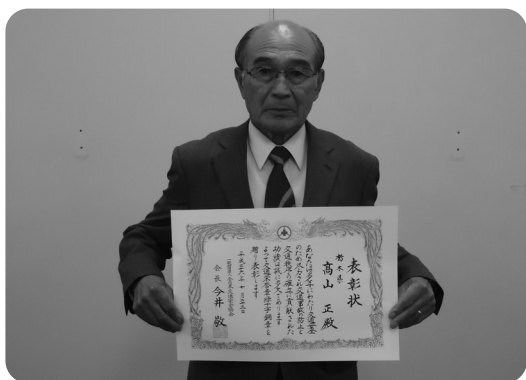 表彰状
栃木県
高山 正 殿
あなたは多年にわたり交通安全
のため尽力され交通事故の防止と
交通秩序の確立に貢献された
功績は誠に多大であります
よって交通栄誉章緑十字銅章を
贈り表彰します
会長 今井 敬